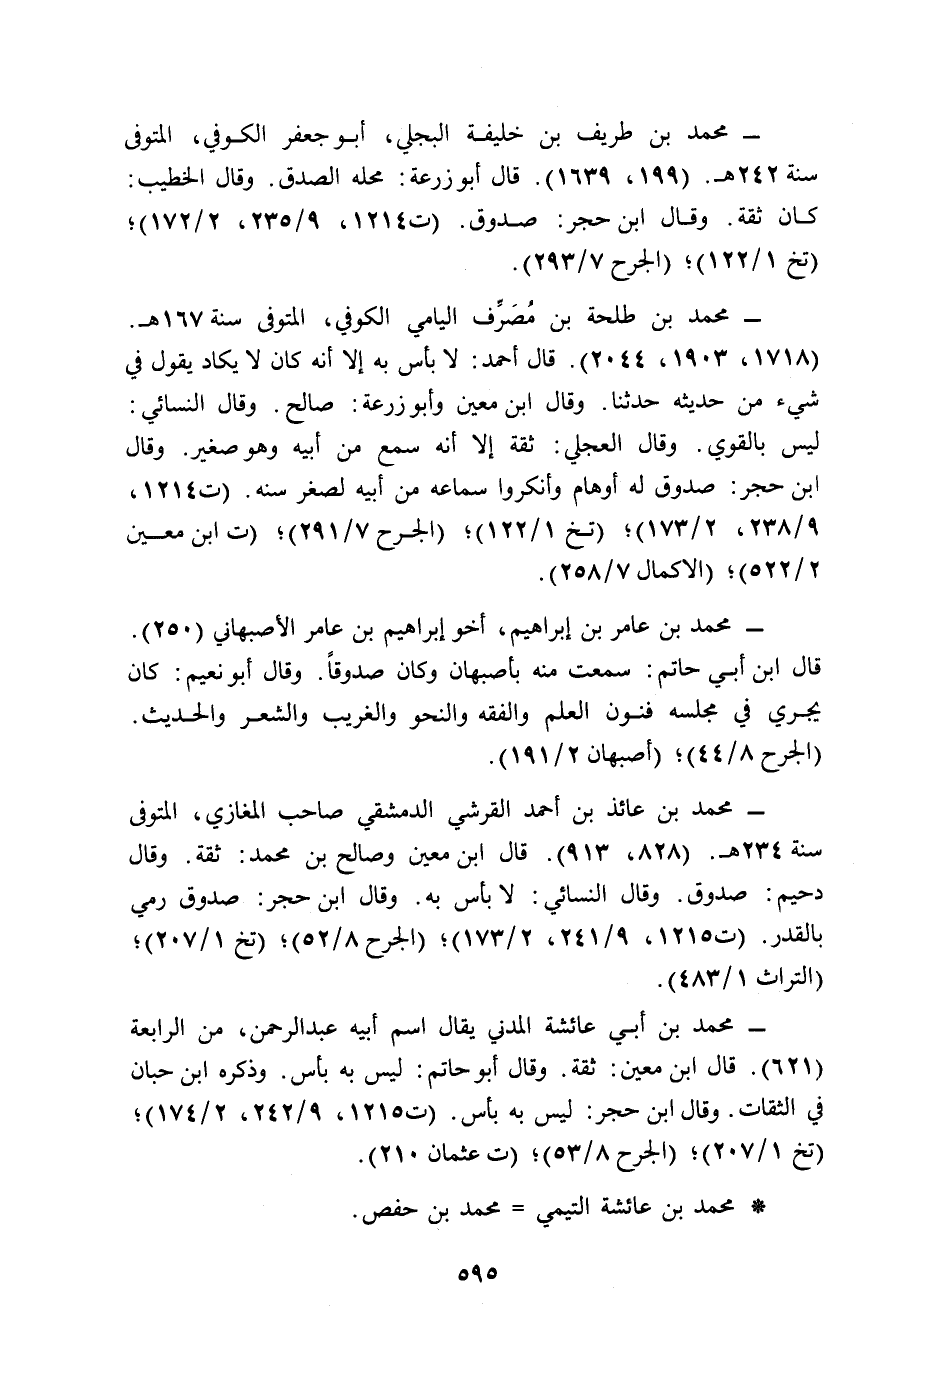 ــ محمد بن طريف بن خليفة البجلي، أبو جعفر الكوفي، المتوفى
سنة ٢٤٢هـ. (١٩٩، ١٦٣٩). قال أبو زرعة: محله الصدق. وقال الخطيب:
كان ثقة. وقال ابن حجر: صدوق. (ت١٢١٤، ٢٣٥/٩، ١٧٢/٢)؛
(تخ ١٢٢/١)؛ (الجرح ٢٩٣/٧).
ــ محمد بن طلحة بن مُصَرِّف اليامي الكوفي، المتوفى سنة ١٦٧هـ.
(١٧١٨، ١٩٠٣، ٢٠٤٤). قال أحمد: لا بأس به إلا أنه كان لا يكاد يقول في
شيء من حديثه حدثنا. وقال ابن معين وأبو زرعة: صالح. وقال النسائي:
ليس بالقوي. وقال العجلي: ثقة إلا أنه سمع من أبيه وهو صغير. وقال
ابن حجر: صدوق له أوهام وأنكروا سماعه من أبيه لصغر سنه. (ت١٢١٤،
٢٣٨/٩، ١٧٣/٢)؛ (تخ ١٢٢/١)؛ (الجرح ٢٩١/٧)؛ (ت ابن معين
٥٢٢/٢)؛ (الاكمال ٢٥٨/٧).
ــ محمد بن عامر بن إبراهيم، أخو إبراهيم بن عامر الأصبهاني (٢٥٠).
قال ابن أبي حاتم: سمعت منه بأصبهان وكان صدوقاً. وقال أبو نعيم: كان
يجري في مجلسه فنون العلم والفقه والنحو والغريب والشعر والحديث.
(الجرح ٤٤/٨)؛ (أصبهان ١٩١/٢).
ــ محمد بن عائذ بن أحمد القرشي الدمشقي صاحب المغازي، المتوفى
سنة ٢٣٤هـ. (٨٢٨، ٩١٣). قال ابن معين وصالح بن محمد: ثقة. وقال
دحيم: صدوق. وقال النسائي: لا بأس به. وقال ابن حجر: صدوق رمي
بالقدر. (ت١٢١٥، ٢٤١/٩، ١٧٣/٢)؛ (الجرح ٥٢/٨)؛ (تخ ٢٠٧/١)؛
(التراث ٤٨٣/١).
ــ محمد بن أبي عائشة المدني يقال اسم أبيه عبدالرحمن، من الرابعة
(٦٢١). قال ابن معين: ثقة. وقال أبو حاتم: ليس به بأس. وذكره ابن حبان
في الثقات. وقال ابن حجر: ليس به بأس. (ت١٢١٥، ٢٤٢/٩، ١٧٤/٢)؛
(تخ ٢٠٧/١)؛ (الجرح ٥٣/٨)؛ (ت عثمان ٢١٠).
* محمد بن عائشة التيمي = محمد بن حفص.
٥٩٥